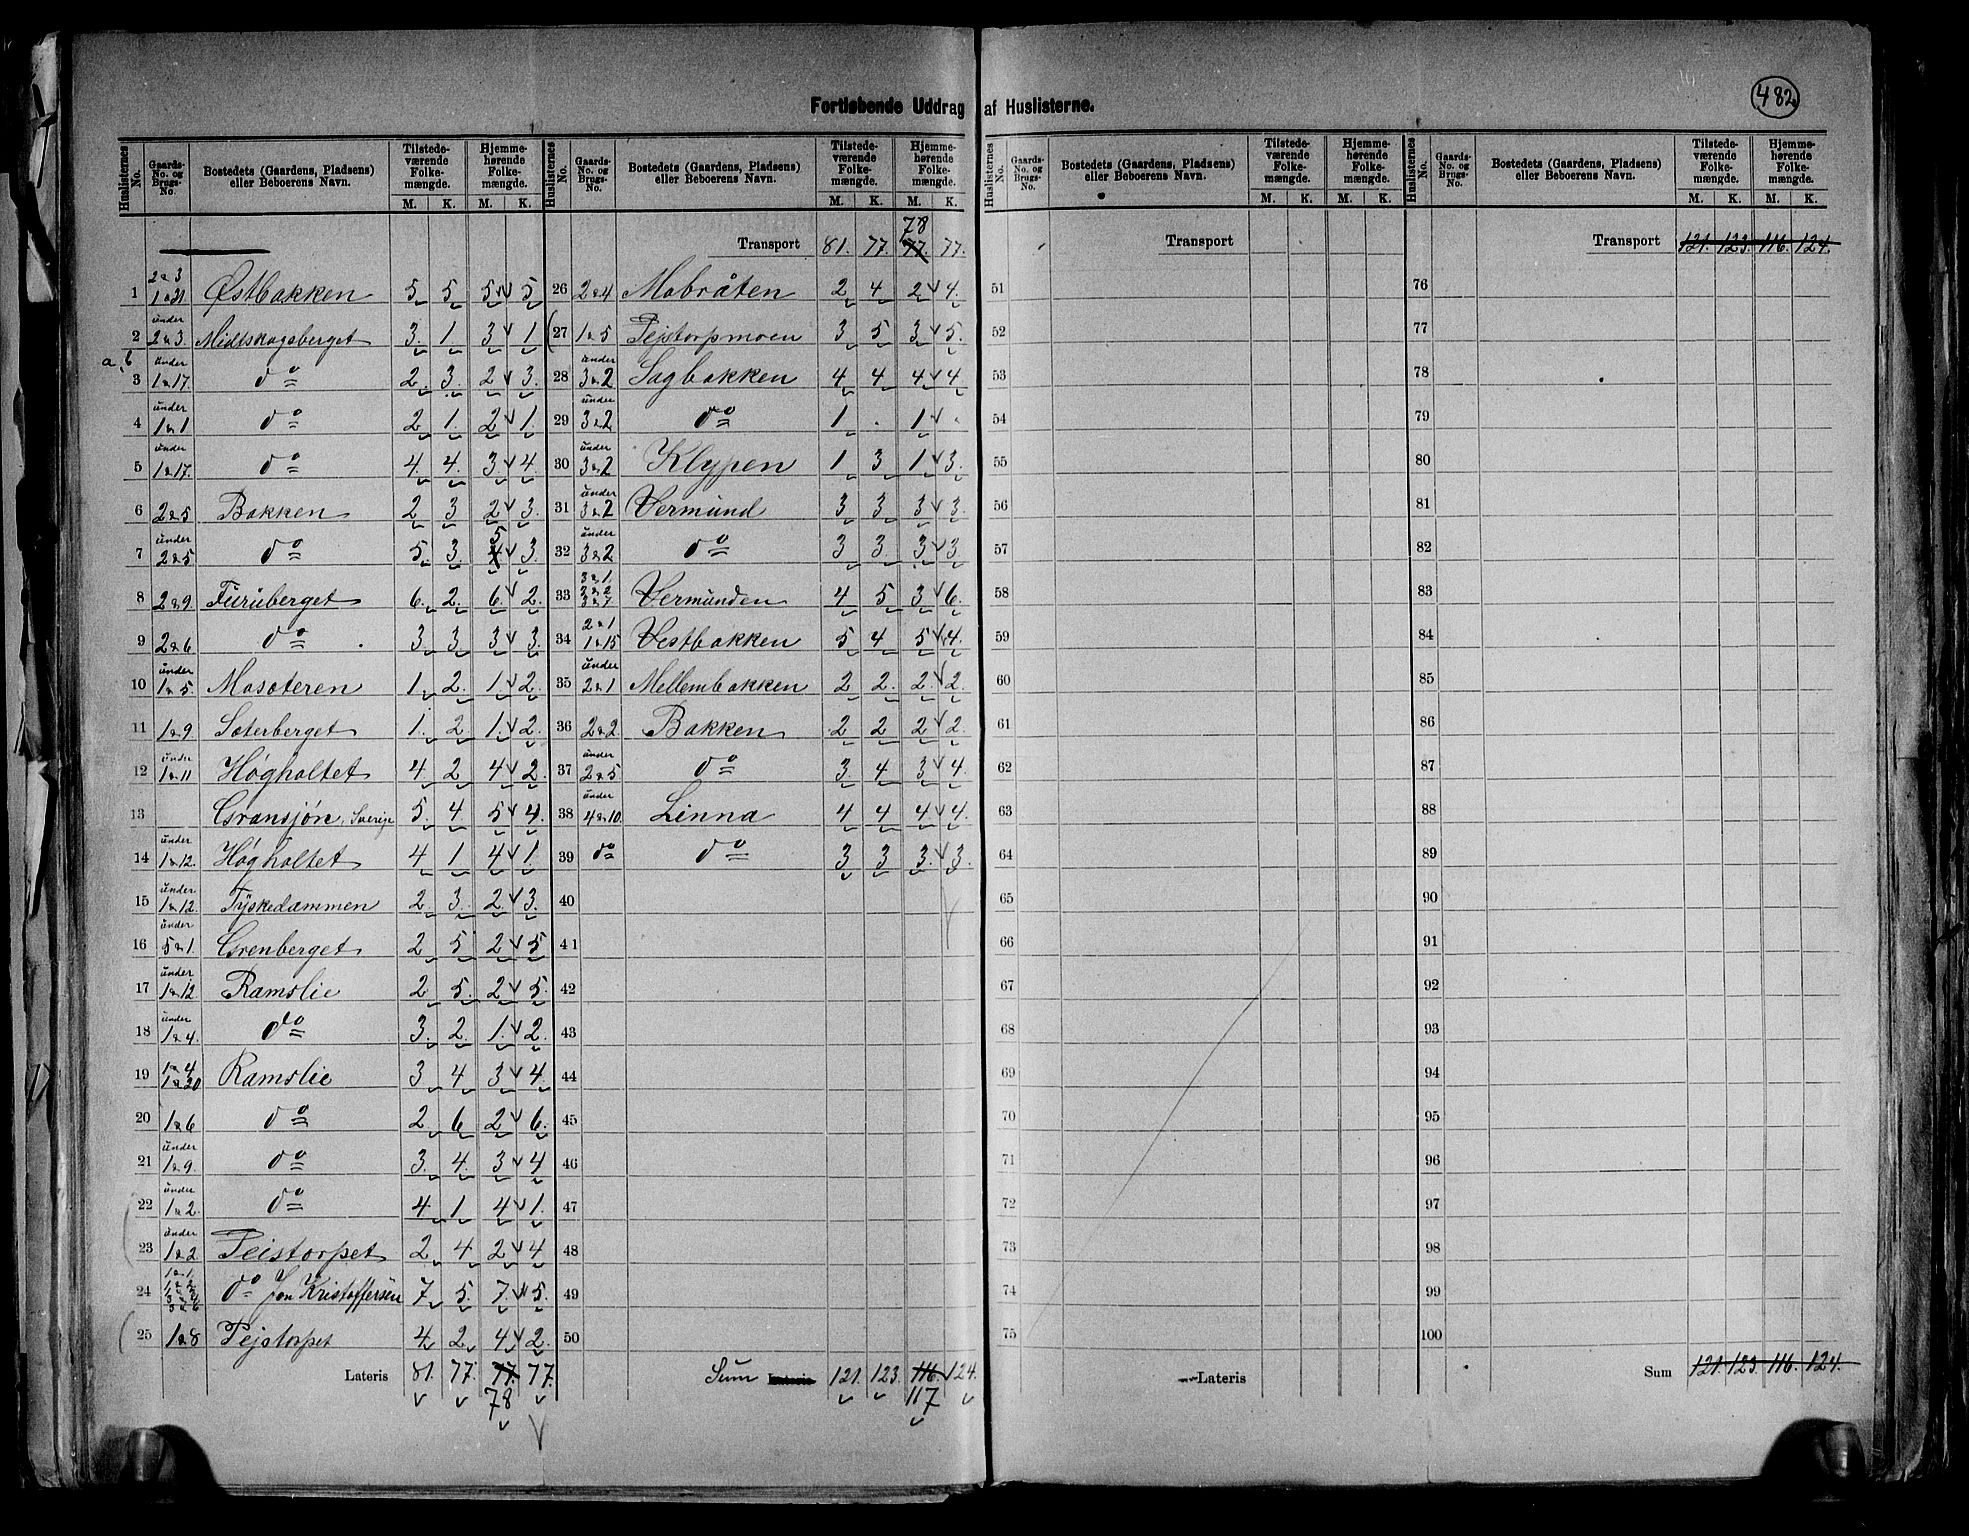 482
Fortløbende Uddrag af Huslisterne.
Huslisternes No. | Gaards-No. og Brugs-No. | Bostedets (Gaardens, Pladsens) eller Beboerens Navn. | Tilstedeværende Folkemængde. M. K. | Hjemmehørende Folkemængde. M. K.
Transport 81. 77. 77. 78 77.
Transport
Transport 121. 123. 116. 124.
1 2 " 3 1 " 31 Østbakken 5 5 5 5
2 under 2 " 3. Midtskogsberget 3. 1 3 1
a, b
3 under 1 " 17. do 2. 3. 2 3.
4 under 1 " 1 do 2 1. 2 1.
5 under 1 " 17. do 4. 4. 3 4.
6 2 " 5 Bakken 2 3 2 3.
7 under 2 " 5 do 5. 3. 4 5 3.
8 2 " 9. Furuberget 6. 2. 6. 2.
9 2 " 6 do 3. 3 3 3.
10 under 1 " 5. Masateren 1. 2. 1 2.
11 1 " 9 Saterberget 1. 2 1. 2.
12 under 1 " 11 Høgholtet 4. 2 4 2.
13 Gransjøn, Sverige 5. 4. 5 4.
14 under 1 " 12. Høgholtet 4 1 4 1.
15 under 1 " 12. Tyskedammen 2. 3. 2 3.
16 under 5 " 1. Grenberget 2 5 2 5
17 under 1 " 12 Ramslie 2 5. 2 5.
18 under 1 " 4. do 3. 2. 1. 2.
19 1 " 4 1 " 20 Ramslie 3 4 3 4.
20 1 " 6 do 2 6 2 6.
21 under 1 " 9. do 3. 4. 3 4
22 under 1 " 2. do 4. 1 4 1.
23 under 1 " 2 Peistorpet 2 4 2 4
24 1 " 1. 1 " 2 do Jon Kristoffersen 7 5. 7. 5.
25 1 " 8 Pejstorpet 4 2 4 2.
Lateris 81. 77. 77. 78 77.
26 2 " 4 Mobråten 2 4 2 4.
27 1 " 5 Pejstorpmoen 3 5 3 5.
28 under 3 " 2 Sagbakken 4 4 4 4
29 under 3 " 2 do 1 . 1 .
30 under 3 " 2 Klypen 1 3 1 3.
31 under 3 " 2 Vermund 3 3 3 3.
32 under 3 " 2 do 3 3. 3 3
33 3 " 1. 2 " 2 3 " 7 Vermunden 4 5 3 6.
34 2 " 1 1 " 15 Vestbakken 5 4 5 4.
35 under 2 " 1 Mellembakken 2 2. 2. 2.
36 2 " 2 Bakken 2 2 2 2
37 under 2 " 5 do 3. 4 3 4.
38 under 4 " 10. Linna 4 4 4 4.
39 do do 3 3 3. 3.
40
41
42
43
44
45
46
47
48
49
50
Sum Lateris 121. 123. 116. 117 124.
51
52
53
54
55
56
57
58
59
60
61
62
63
64
65
66
67
68
69
70
71
72
73
74
75
Lateris
76
77
78
79
80
81
82
83
84
85
86
87
88
89
90
91
92
93
94
95
96
97
98
99
100
Sum 121. 123. 116. 124.